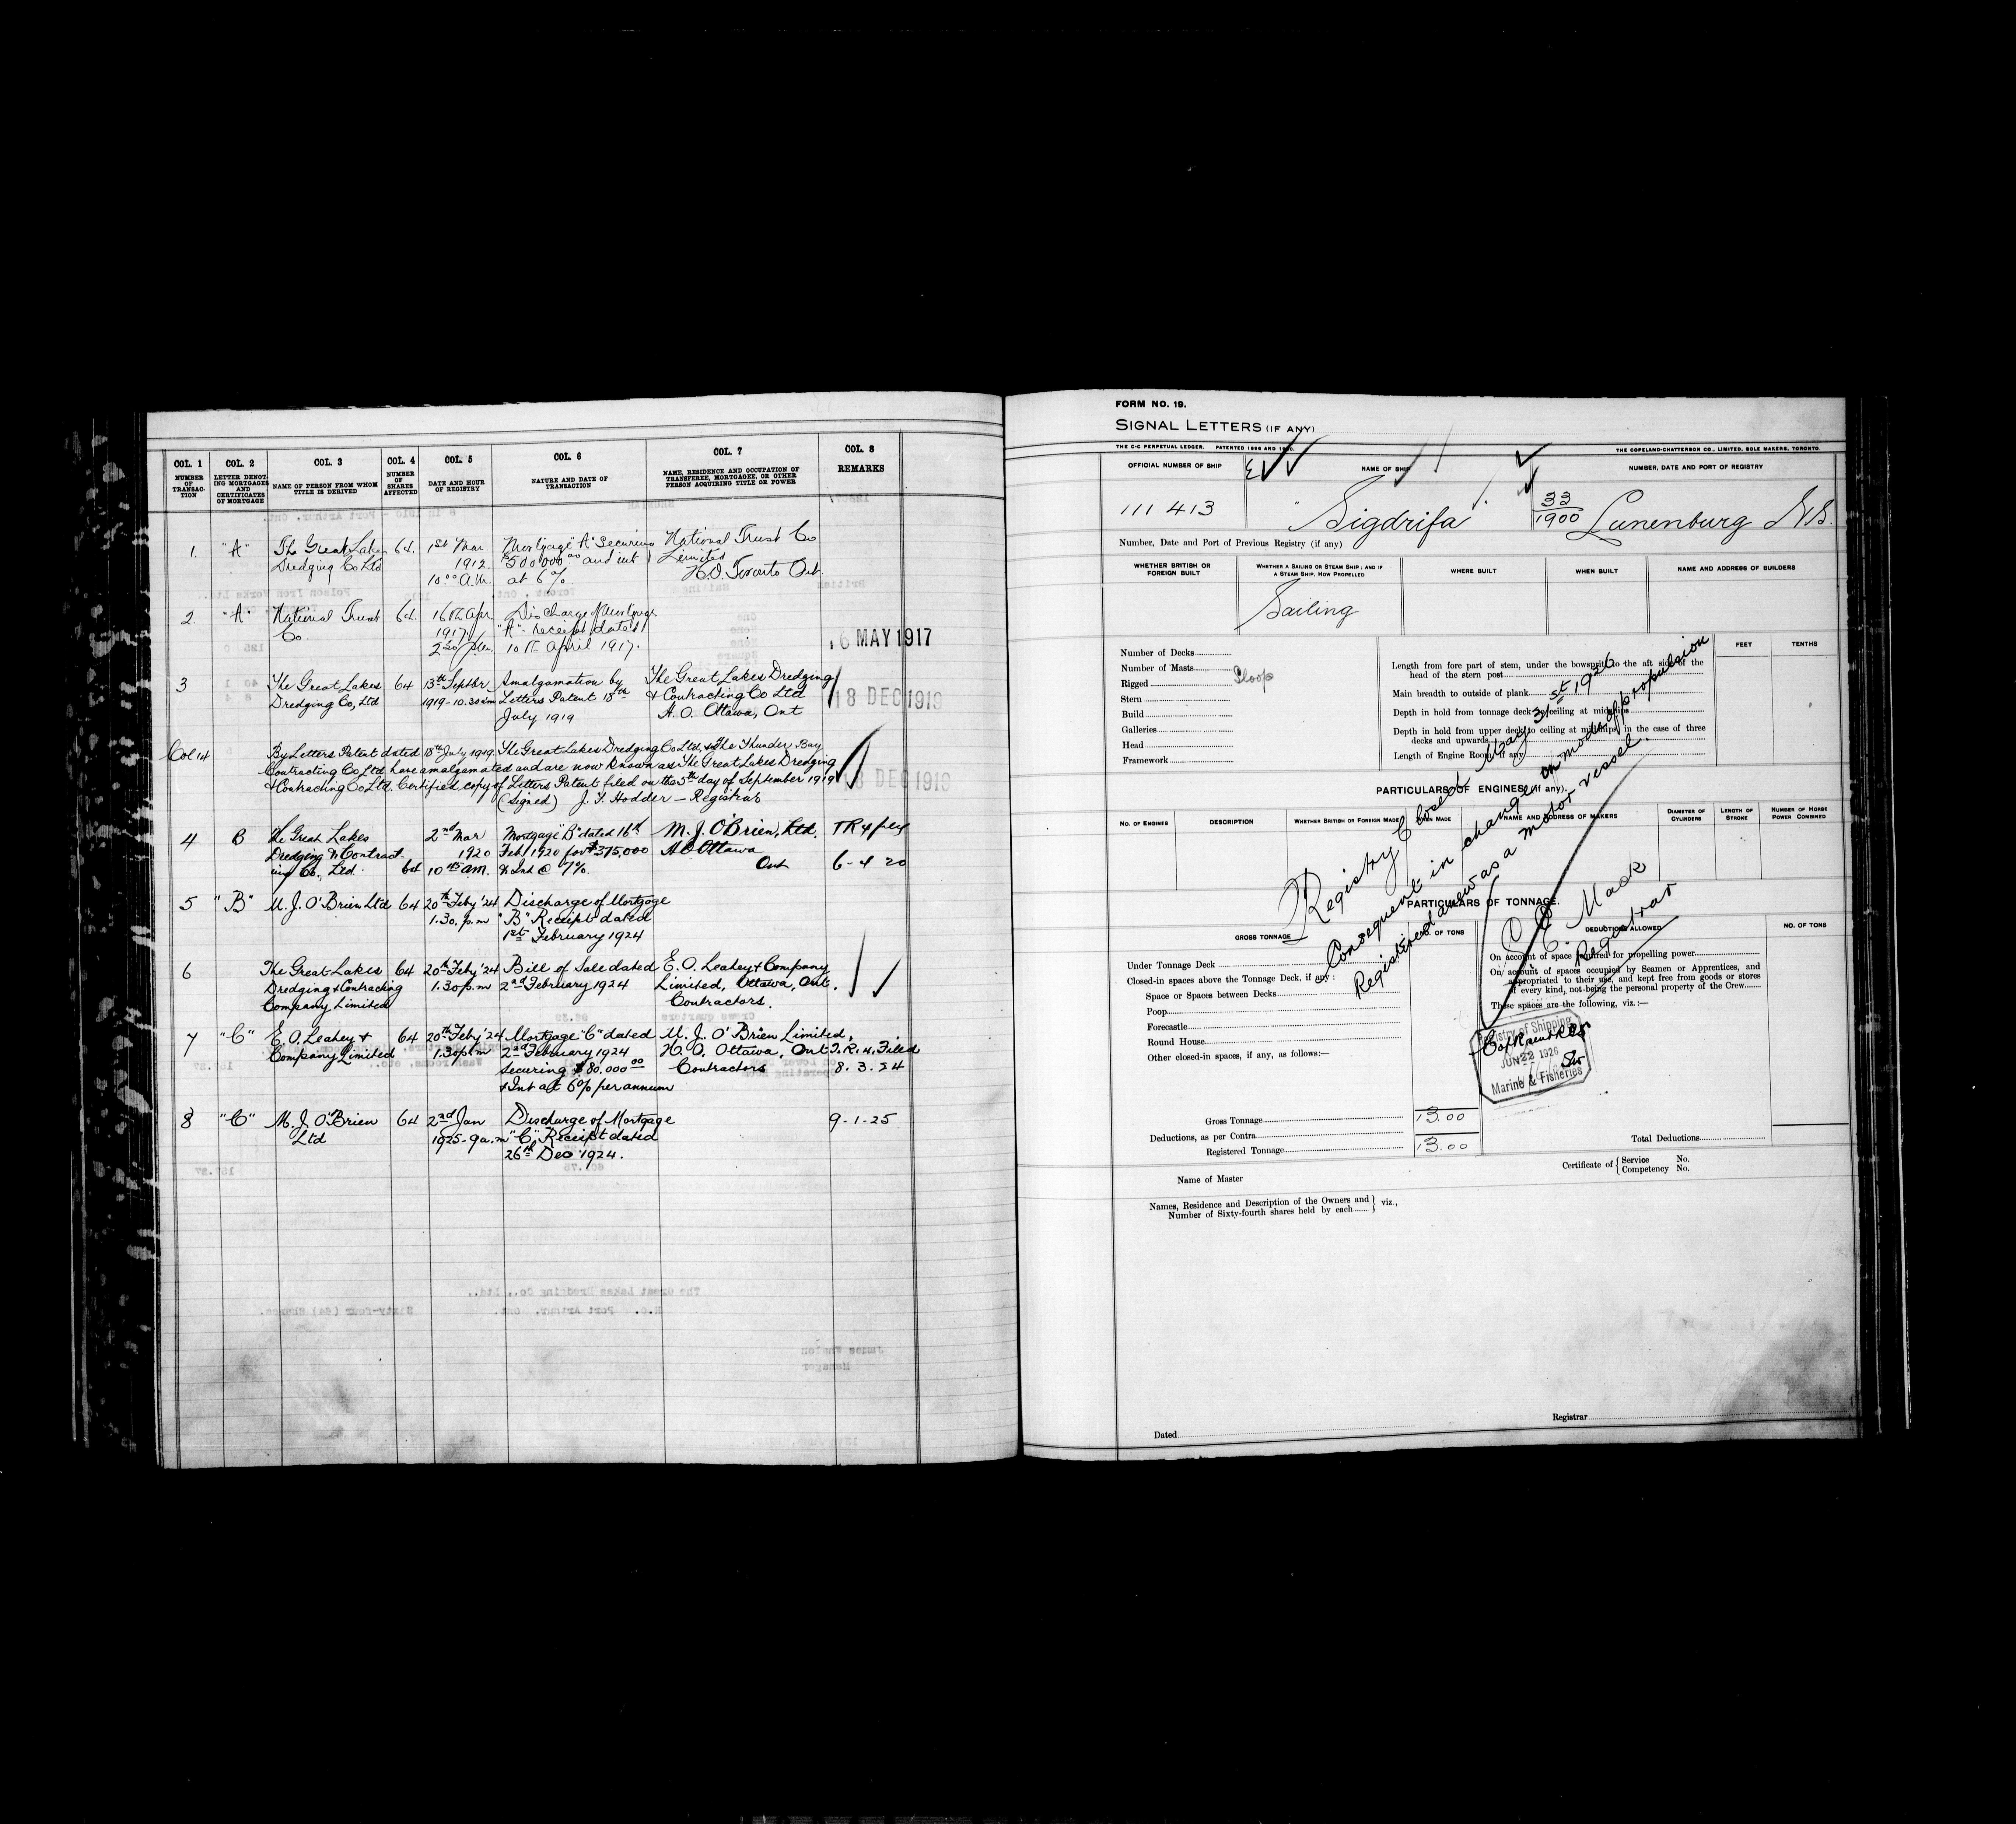 COL. 1 COL. 2 COL. 3 COL. 4 COL. 5 COL. 6 COL. 7 COL. 8
NUMBER OF TRANSAC-TION
LETTER DENOT-ING MORTGAGES AND CERTIFICATES OF MORTGAGE
NAME OF PERSON FROM WHOM TITLE IS DERIVED
NUMBER OF SHARES AFFECTED
DATE AND HOUR OF REGISTRY
NATURE AND DATE OF TRANSACTION
NAME, RESIDENCE AND OCCUPATION OF TRANSFEREE, MORTGAGEE, OR OTHER PERSON ACQUIRING TITLE OR POWER
REMARKS
1. "A" The Great Lakes 64. 1st Mar Mortgage "A" securing National Trust Co
Dredging Co Ltd 1912. $500,000.00 and int Limited
10.00 A.M. at 6% H.O. Toronto Ont.
2. "A" National Trust 64. 16th Apr Discharge of Mortgage
Co. 1917 "A" receipt dated 16 MAY 1917
2.20 p.m. 10th April 1917.
3 The Great Lakes 64 13th Septbr Amalgamation by The Great Lakes Dredging
Dredging Co, Ltd 1919-10.30 am Letters Patent 18th & Contracting Co Ltd 18 DEC 1919
July 1919 H.O. Ottawa, Ont
Col 14 By Letters Patent dated 18th July 1919. The Great Lakes Dredging Co Ltd, & The Thunder Bay
Contracting Co Ltd have amalgamated and are now known as The Great Lakes Dredging
& Contracting Co Ltd. Certified copy of Letters Patent filed on the 5th day of September 1919 18 DEC 1919
(Signed) J. F. Hodder - Registrar
4 B The Great Lakes 2nd Mar Mortgage "B" dated 16th M. J. O'Brien, Ltd. TR 4
Dredging & Contract- 1920 Feb 1920 for $375,000 H O Ottawa
ing Co., Ltd. 64 10 45 am. & Int @ 7%. Ont 6-4 20
5 "B" M. J. O'Brien Ltd 64 20th Feby '24 Discharge of Mortgage
1.30. p.m "B" Receipt dated
1st February 1924
6 The Great Lakes 64 20th Feby '24 Bill of Sale dated E. O. Leahey & Company
Dredging & Contracting 1.30 p.m 2nd February 1924 Limited, Ottawa, Ont.
Company Limited Contractors.
7 "C" E. O. Leahey & 64 20th Feby '24 Mortgage "C" dated M. J. O'Brien Limited,
Company Limited 1.30 p.m 2nd February 1924 H. O. Ottawa, Ont T.R.4. Filed
securing $80,000.00 Contractors 8.3.24
& Int at 6% per annum
8 "C" M. J. O'Brien 64 2nd Jan Discharge of Mortgage 9-1-25
Ltd 1925-9 a.m "C" Receipt dated
26th Dec 1924.
FORM NO. 19.
SIGNAL LETTERS (IF ANY)
THE C-C PERPETUAL LEDGER. PATENTED 1896 AND THE COPELAND-CHATTERSON CO., LIMITED, SOLE MAKERS, TORONTO
OFFICIAL NUMBER OF SHIP NAME OF SHIP NUMBER, DATE AND PORT OF REGISTRY
111 413 "Sigdrifa" 33/1900 Lunenburg N.S.
Number, Date and Port of Previous Registry (if any)
WHETHER BRITISH OR FOREIGN BUILT
WHETHER A SAILING OR STEAM SHIP; AND IF A STEAM SHIP, HOW PROPELLED
WHERE BUILT
WHEN BUILT
NAME AND ADDRESS OF BUILDERS
Sailing
Number of Decks
Number of Masts
Rigged Sloop
Stern
Build
Galleries
Head
Framework
FEET TENTHS
Length from fore part of stem, under the bowsprit to the aft side of the
head of the stern post
Main breadth to outside of plank
Depth in hold from tonnage deck to ceiling at midships
Depth in hold from upper deck to ceiling at midships, in the case of three
decks and upwards
Length of Engine Room, if any
Registry Closed May 31st 1926
Consequent on change in mode of propulsion
Registered anew as a motor vessel.
S. C. Mack
Registrar
PARTICULARS OF ENGINES (if any).
No. OF ENGINES DESCRIPTION WHETHER BRITISH OR FOREIGN MADE WHEN MADE NAME AND ADDRESS OF MAKERS DIAMETER OF CYLINDERS LENGTH OF STROKE NUMBER OF HORSE POWER COMBINED
PARTICULARS OF TONNAGE.
GROSS TONNAGE NO. OF TONS DEDUCTIONS ALLOWED NO. OF TONS
Under Tonnage Deck
Closed-in spaces above the Tonnage Deck, if any:
Space or Spaces between Decks
Poop
Forecastle
Round House
Other closed-in spaces, if any, as follows:—
On account of space required for propelling power
On account of spaces occupied by Seamen or Apprentices, and
appropriated to their use, and kept free from goods or stores
of every kind, not being the personal property of the Crew
These spaces are the following, viz.:—
Registry of Shipping
JUN 22 1926
Marine & Fisheries
Gross Tonnage 13.00
Deductions, as per Contra
Registered Tonnage 13.00
Total Deductions
Name of Master
Certificate of { Service No.
Competency No.
Names, Residence and Description of the Owners and
Number of Sixty-fourth shares held by each } viz.,
Dated
Registrar